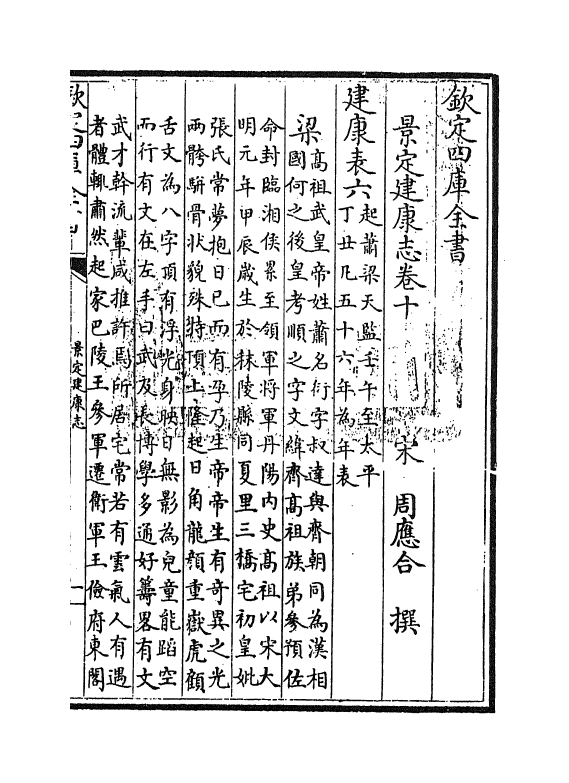 欽定四庫全書
景定建康志卷十 宋 周應合 撰
建康表六 起蕭梁天監壬午至太平
丁丑凡五十六年為年表
梁 髙祖武皇帝姓蕭名衍字叔達與齊朝同為漢相
國何之後皇考順之字文緯齊髙祖族弟參預佐
命封臨湘侯累至領軍將軍丹陽内史髙祖以宋大
明元年甲辰歲生於秣陵縣同夏里三橋宅初皇妣
張氏常夢抱日已而有孕乃生帝帝生有奇異之光
兩骻駢骨狀貌殊特頂上隆起日角龍顔重嶽虎顧
舌文為八字頂有浮光身映日無影為兒童能蹈空
而行有文在左手曰武及長博學多通好籌畧有文
武才幹流輩咸推許焉所居宅常若有雲氣人有遇
者體輒肅然起家巴陵王參軍遷衛軍王儉府東閣
欽定四庫全書
景定建康志
一